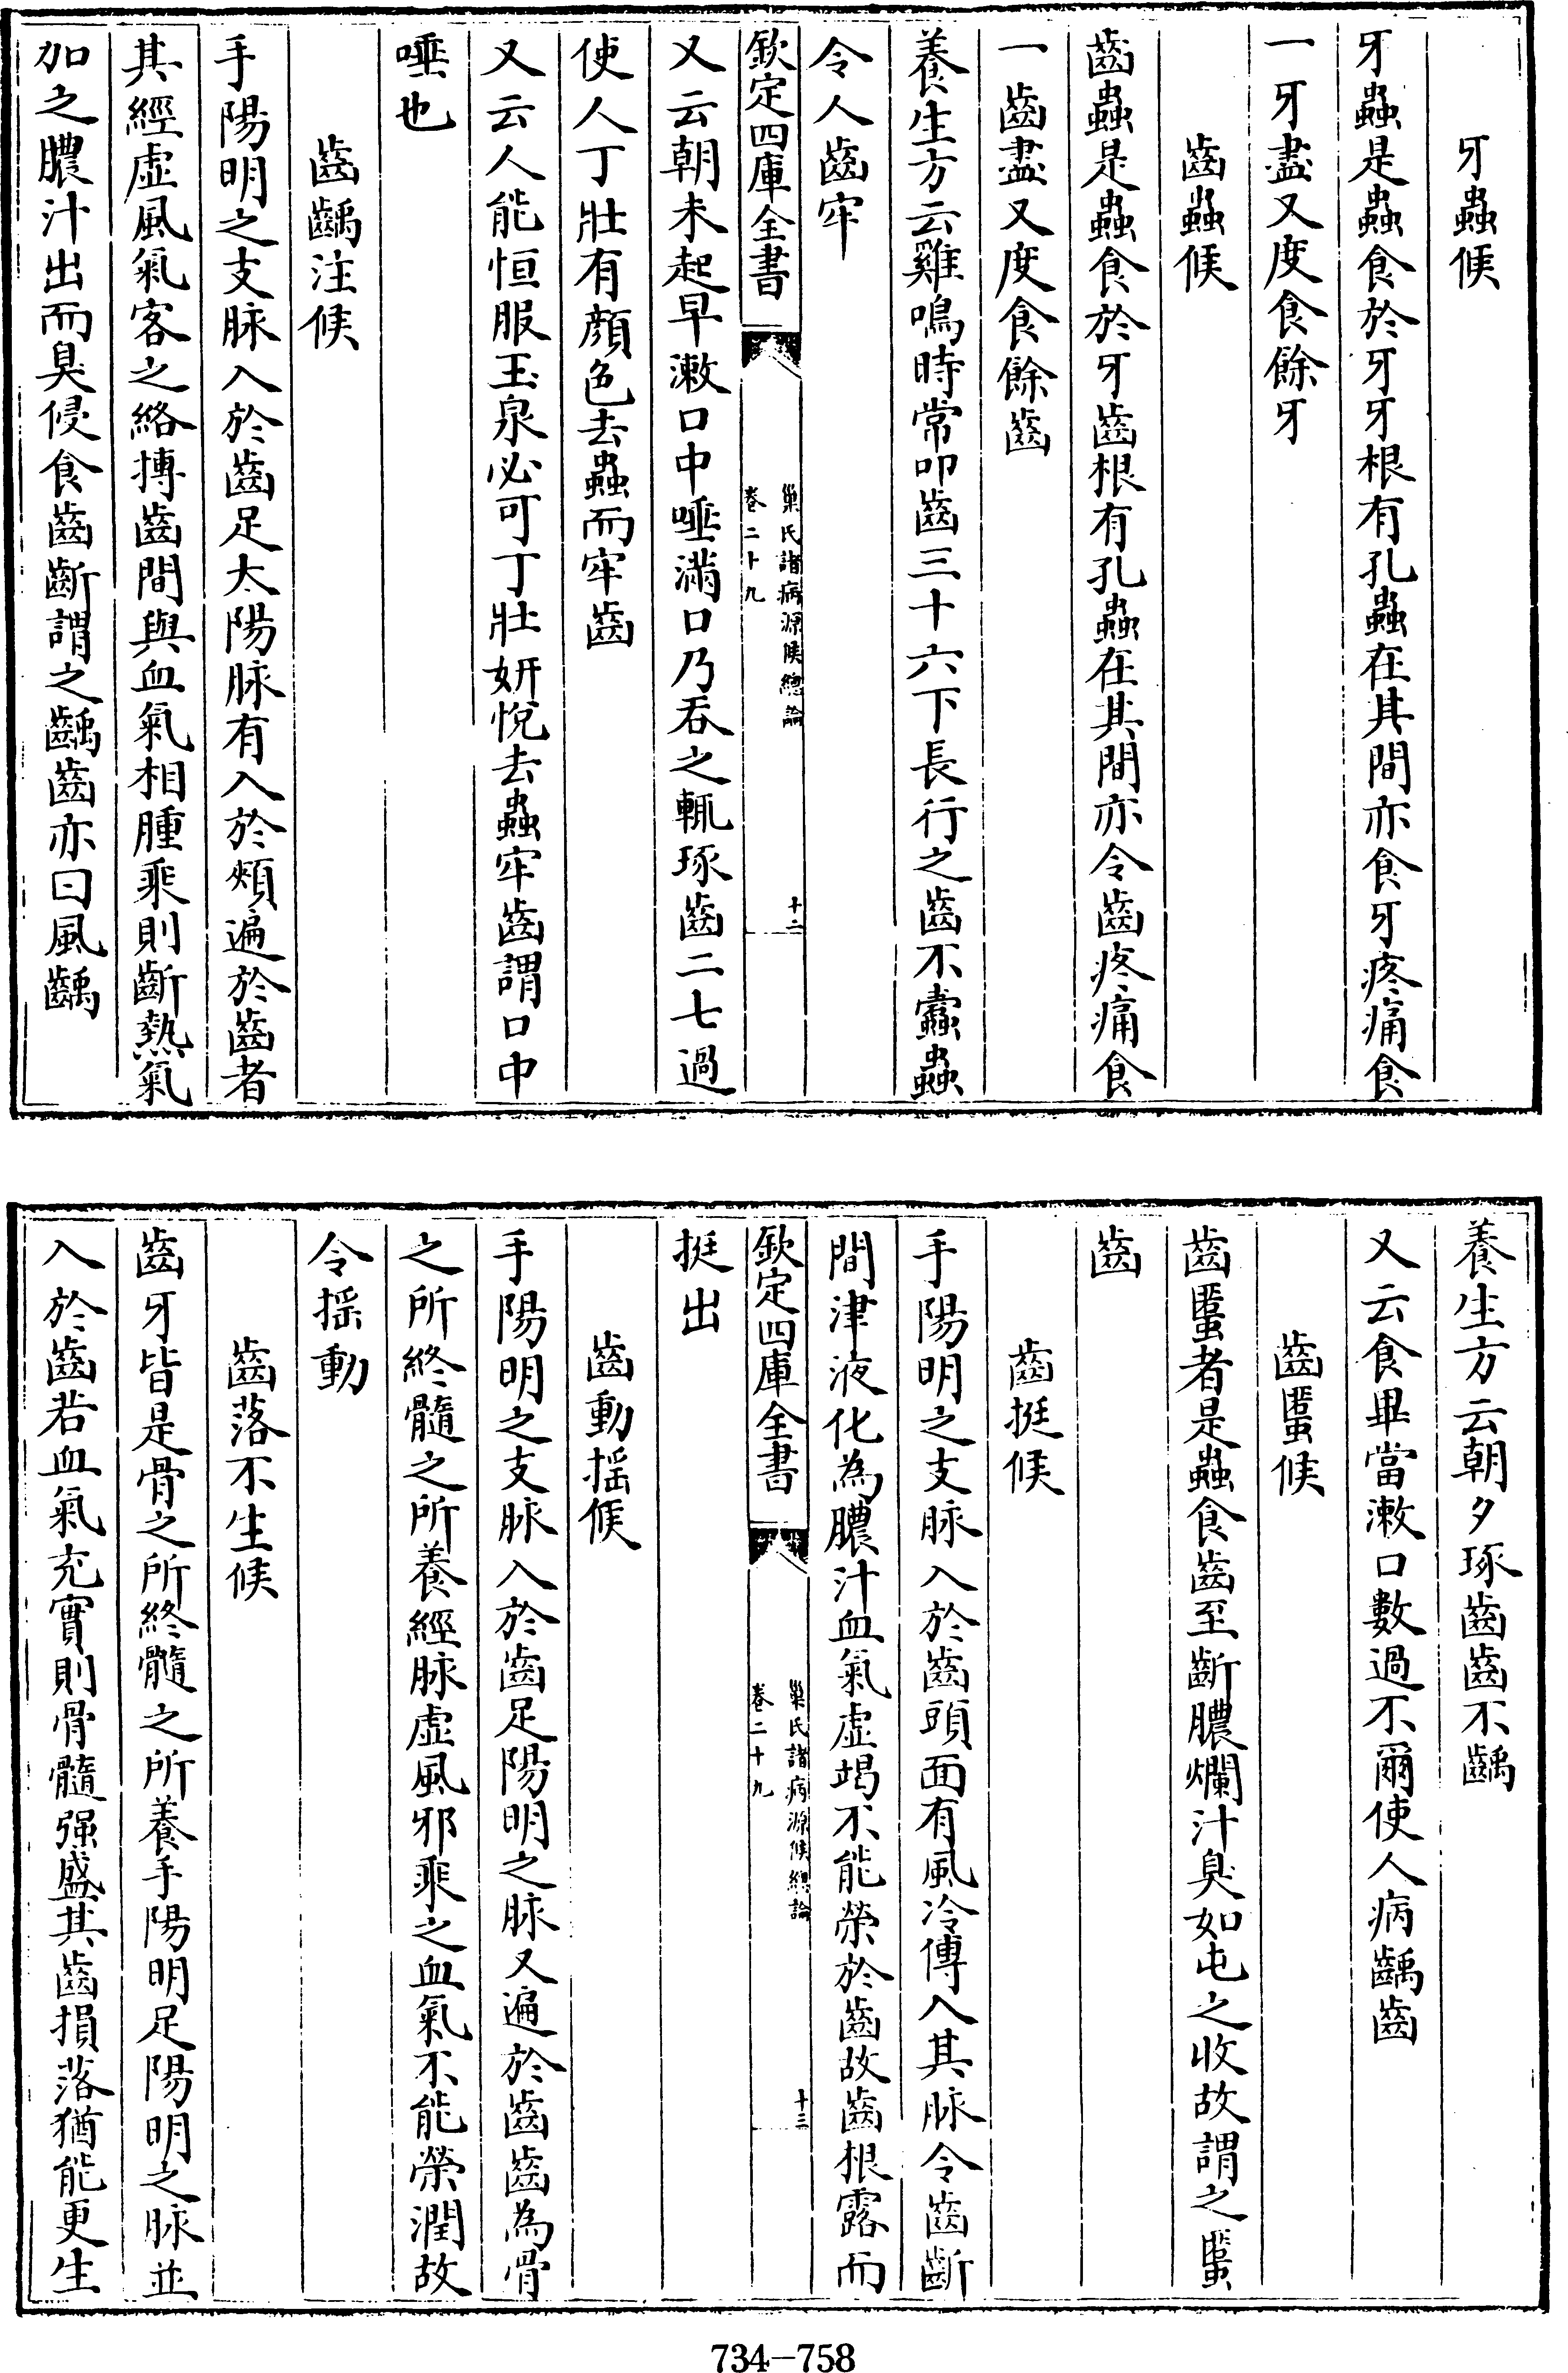 牙蟲候
牙蟲是蟲食於牙牙根有孔蟲在其間亦食牙疼痛食
一牙盡又度食餘牙
齒蟲候
齒蟲是蟲食於牙齒根有孔蟲在其間亦令齒疼痛食
一齒盡又度食餘齒
養生方云雞鳴時常叩齒三十六下長行之齒不蠹蟲
令人齒牢
欽定四庫全書
巢氏諸病源候總論
卷二十九
十二
又云朝未起早漱口中唾滿口乃吞之輒琢齒二七過
使人丁壯有顔色去蟲而牢齒
又云人能恒服玉泉必可丁壯妍悅去蟲牢齒謂口中
唾也
齒齲注候
手陽明之支脉入於齒足太陽脉有入於頰遍於齒者
其經虚風氣客之絡摶齒間與血氣相腫乘則齗熱氣
加之膿汁出而臭侵食齒齗謂之齲齒亦曰風齲
養生方云朝夕琢齒齒不齲
又云食畢當漱口數過不爾使人病齲齒
齒䘌候
齒䘌者是蟲食齒至齗膿爛汁臭如屯之收故謂之䘌
齒
齒挺候
手陽明之支脉入於齒頭面有風冷傳入其脉令齒齗
間津液化為膿汁血氣虚竭不能榮於齒故齒根露而
欽定四庫全書
巢氏諸病源候總論
卷二十九
十三
挺出
齒動揺候
手陽明之支脉入於齒足陽明之脉又遍於齒齒為骨
之所終髓之所養經脉虚風邪乘之血氣不能榮潤故
令揺動
齒落不生候
齒牙皆是骨之所終髓之所養手陽明足陽明之脉並
入於齒若血氣充實則骨髓强盛其齒損落猶能更生
734-758